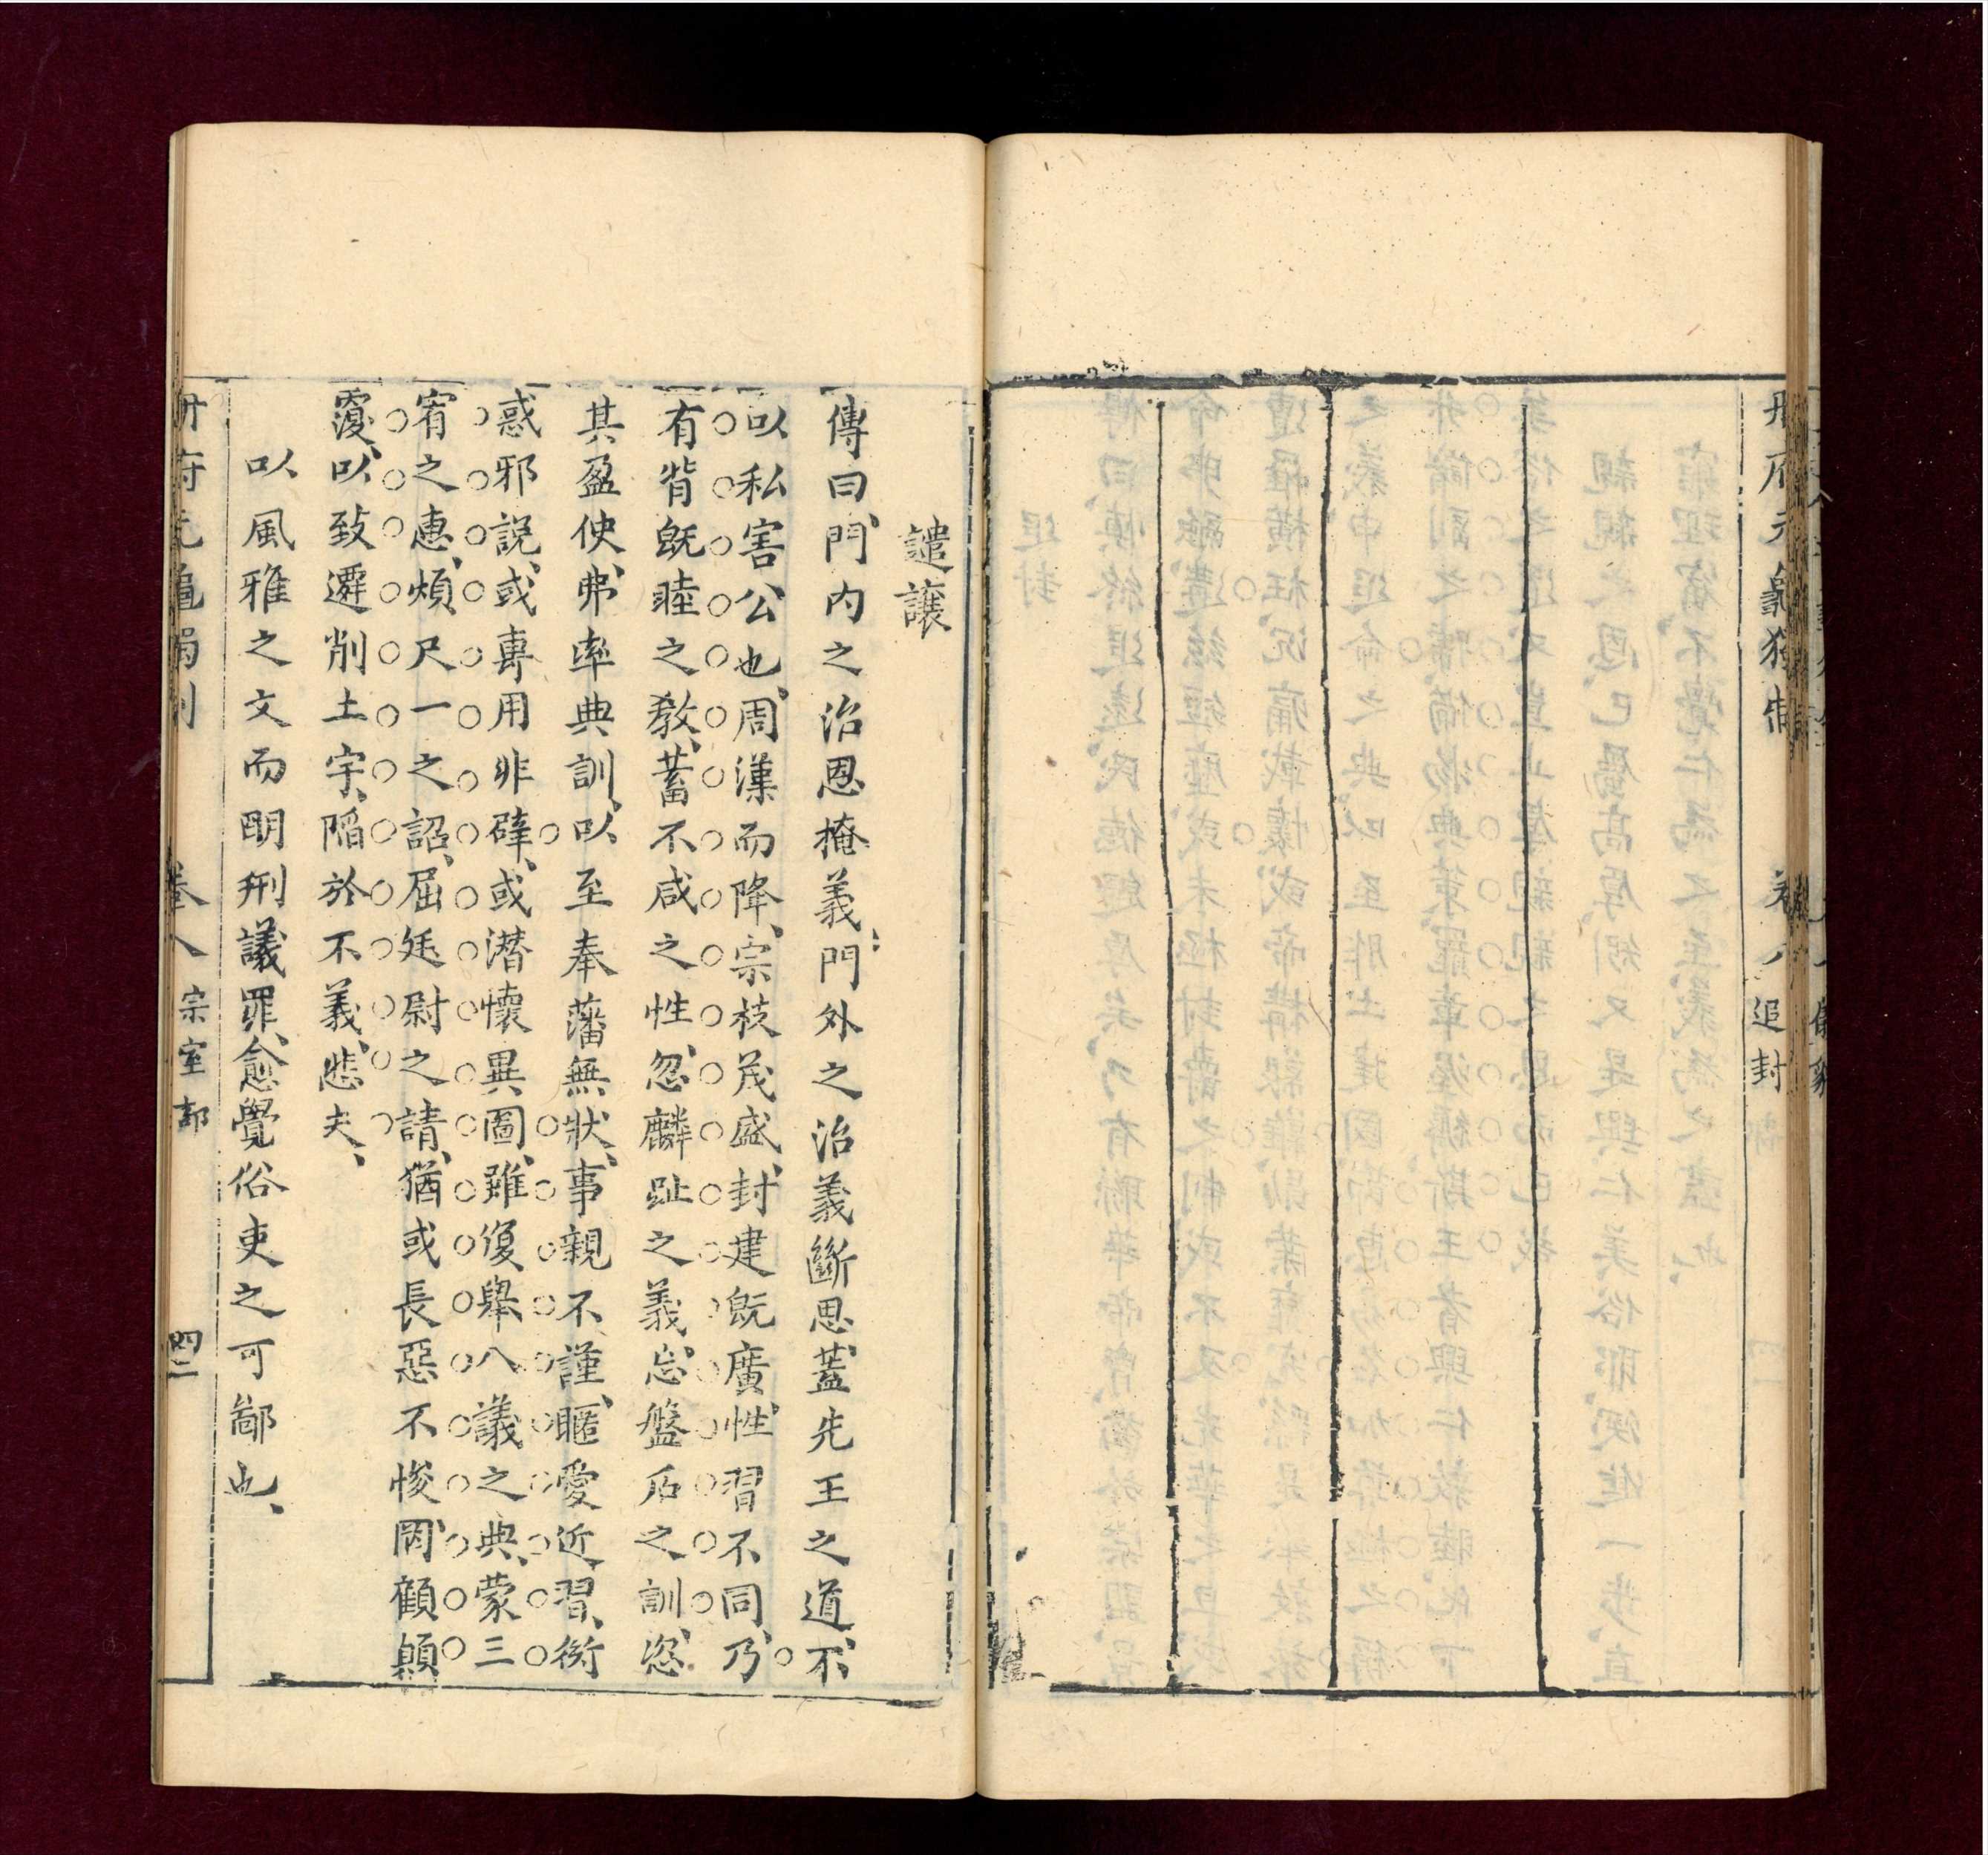 冊府元龜獨制 卷八 追封
譴讓
傳曰門内之治恩掩義門外之治義斷恩蓋先王之道不
以私害公也周漢而降宗枝茂盛封建既廣性習不同乃
有背既睦之教蓄不咸之性忽麟趾之義忘盤石之訓恣
其盈使弗率典訓以至奉藩無狀事親不謹暱愛近習衒
惑邪説或專用非辟或潜懷異圖雖復舉八議之典蒙三
宥之惠煩尺一之詔屈廷尉之請猶或長惡不悛罔顧顛
覆以致遷削土宇陷於不義悲夫
以風雅之文而明刑議罪愈覺俗吏之可鄙也
冊府元龜獨制 卷八 宗室部 四二